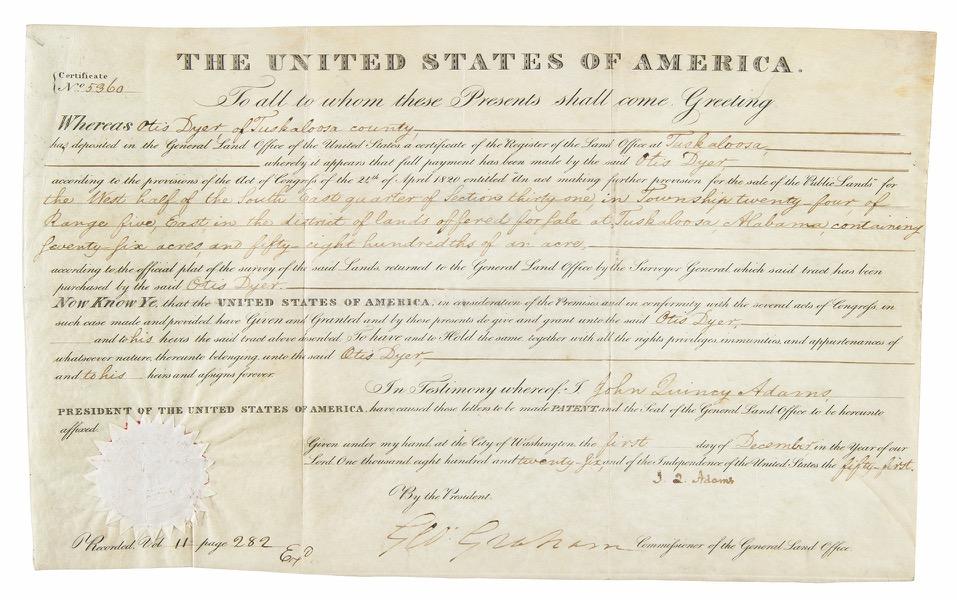 THE UNITED STATES OF AMERICA.
Certificate
No. 5360
To all to whom these Presents shall come Greeting
Whereas Otis Dyer of Tuskaloosa county,
has deposited in the General Land Office of the United States, a certificate of the Register of the Land Office at Tuskaloosa,
whereby it appears that full payment has been made by the said Otis Dyer
according to the provisions of the Act of Congress of the 24th of April 1820 entitled "An act making further provision for the sale of the Public Lands" for
the West half of the South East quarter of Section thirty-one in Township twenty-four of
Range five, East, in the district of lands offered for sale at Tuskaloosa, Alabama, containing
seventy-six acres, and fifty-eight hundredths of an acre,
according to the official plat of the survey of the said Lands, returned to the General Land Office by the Surveyor General, which said tract has been
purchased by the said Otis Dyer.
Now Know Ye, that the UNITED STATES OF AMERICA, in consideration of the Premises and in conformity with the several acts of Congress, in
such case made and provided, have Given and Granted and by these presents do give and grant unto the said Otis Dyer,
and to his heirs the said tract above described, To have and to Hold the same, together with all the rights privileges, immunities, and appurtenances of
whatsoever nature, thereunto belonging, unto the said Otis Dyer,
and to his heirs and assigns forever.
In Testimony whereof, I John Quincy Adams,
PRESIDENT OF THE UNITED STATES OF AMERICA, have caused these letters to be made PATENT and the Seal of the General Land Office to be hereunto
affixed.
Given under my hand, at the City of Washington, the first day of December in the Year of our
Lord One thousand eight hundred and twenty-six and of the Independence of the United States the fifty-first.
J. Q. Adams
By the President.
Recorded, Vol 11 page 282
Exd
G W. Graham Commissioner of the General Land Office.